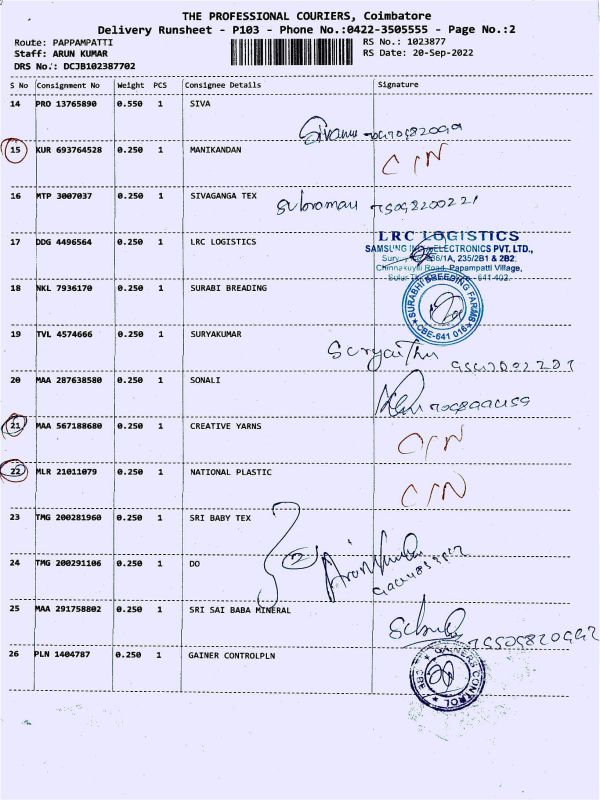 THE PROFESSIONAL COURIERS, Coimbatore
Delivery Runsheet - P103 - Phone No.:0422-3505555 - Page No.:2
Route: PAPPAMPATTI
Staff: ARUN KUMAR
DRS No.: DCJB102387702
RS No.: 1023877
RS Date: 20-Sep-2022
S No Consignment No Weight PCS Consignee Details Signature
14 PRO 13765890 0.550 1 SIVA
15 KUR 693764528 0.250 1 MANIKANDAN C/N
16 MTP 3007037 0.250 1 SIVAGANGA TEX
17 DDG 4496564 0.250 1 LRC LOGISTICS
LRC LOGISTICS
SAMSUNG ELECTRONICS PVT. LTD.,
235/2B1 & 2B2
Chinnakuyili Road, Papampatti Village,
641 402
18 NKL 7936170 0.250 1 SURABI BREADING
SURABHI BREEDING FARMS
CBE-641 016
19 TVL 4574666 0.250 1 SURYAKUMAR
20 MAA 287638580 0.250 1 SONALI
21 MAA 567188680 0.250 1 CREATIVE YARNS C/N
22 MLR 21011079 0.250 1 NATIONAL PLASTIC C/N
23 TMG 200281960 0.250 1 SRI BABY TEX
24 TMG 200291106 0.250 1 DO
2
25 MAA 291758802 0.250 1 SRI SAI BABA MINERAL
26 PLN 1404787 0.250 1 GAINER CONTROLPLN